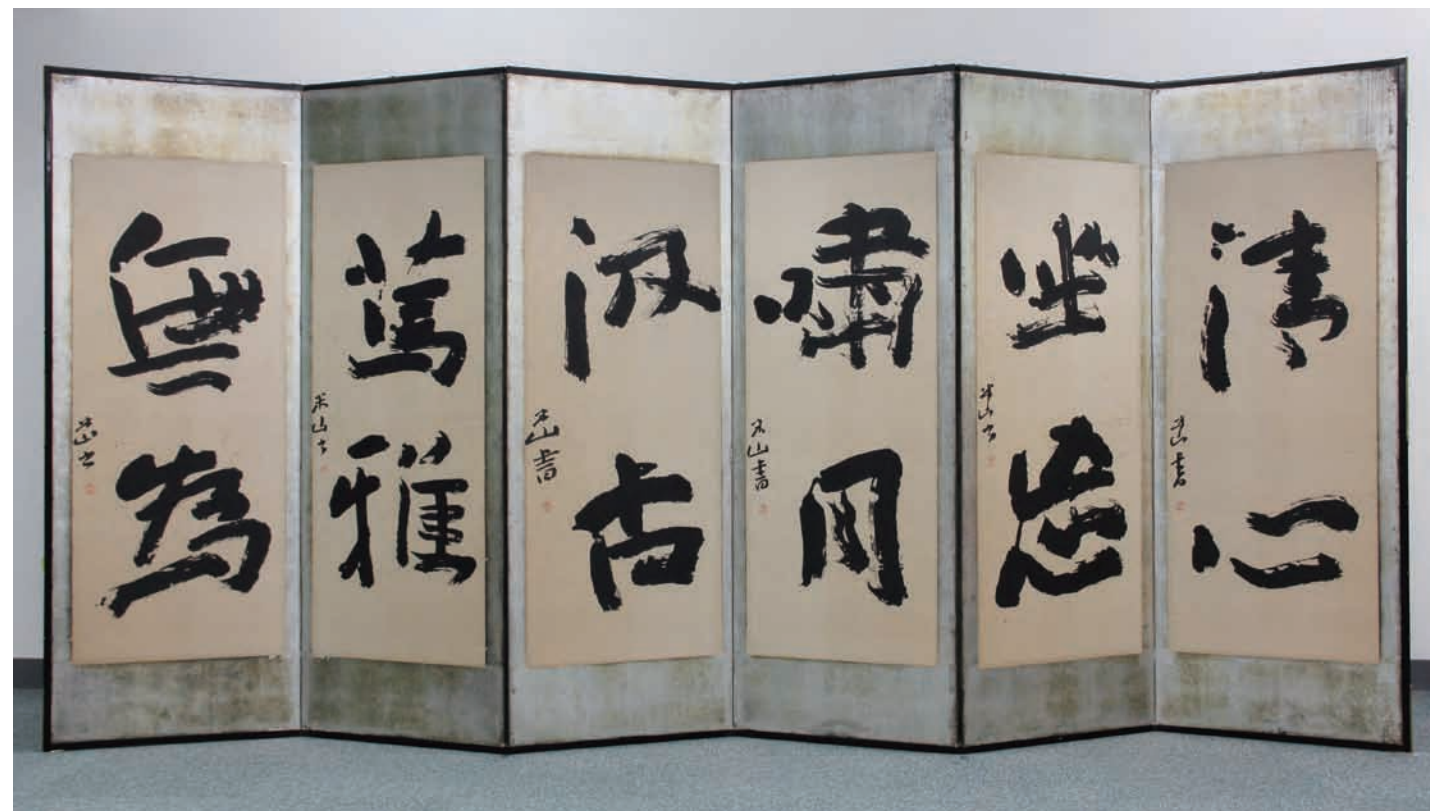 清心
米山書
坐忘
米山書
嘯月
米山書
汲古
米山書
篤雅
米山書
無為
米山書